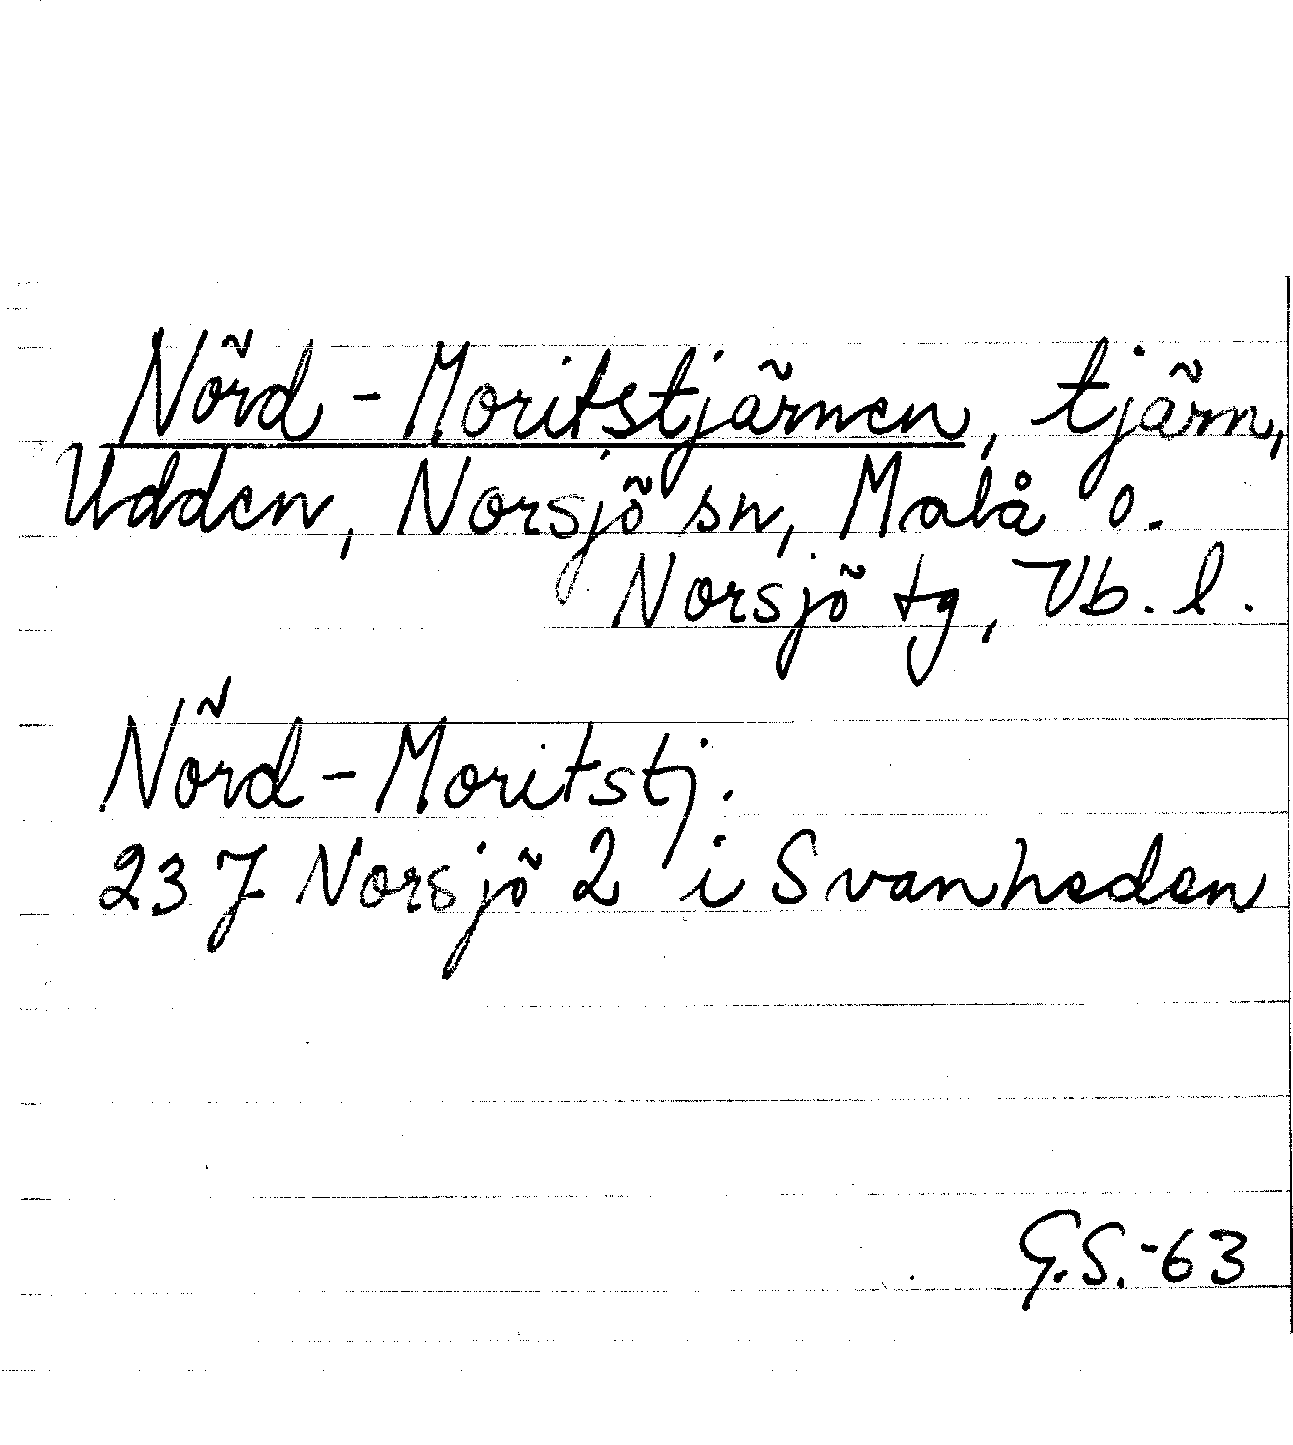 Nörd-Moritstjärnen, tjärn,
Udden, Norsjö sn, Malå o.
Norsjö tg, Vb. l.
Nörd-Moritstj.
23 J Norsjö 2 i Svanheden
G.S.-63